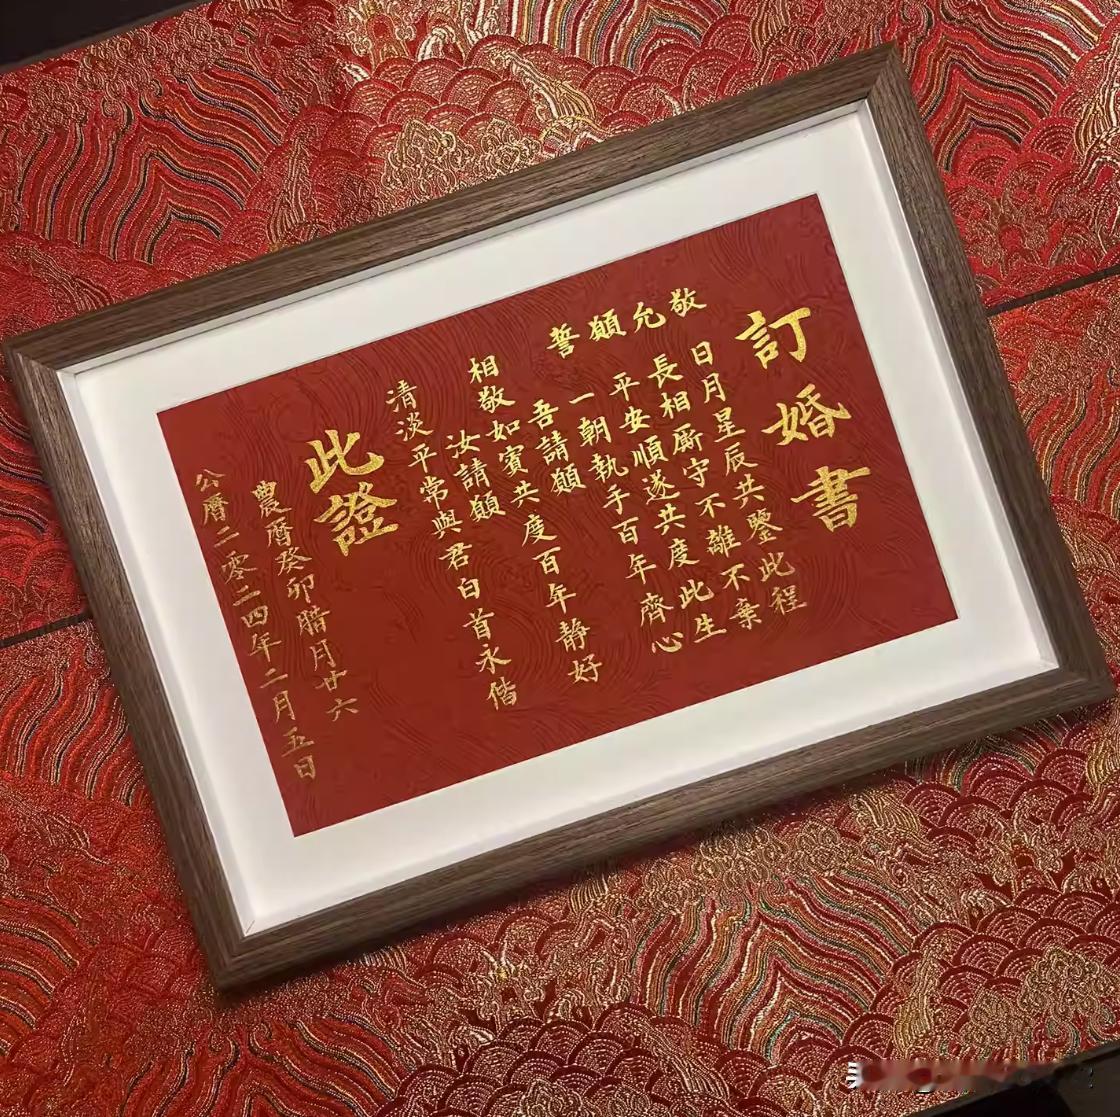 訂婚書
敬 日月星辰共鑒此程
允 長相厮守不離不棄
願 平安順遂共度此生
誓 一朝執手百年齊心
吾請願
相敬如賓共度百年静好
汝請願
清淡平常與君白首永偕
此證
農曆癸卯腊月廿六
公曆二零二四年二月五日